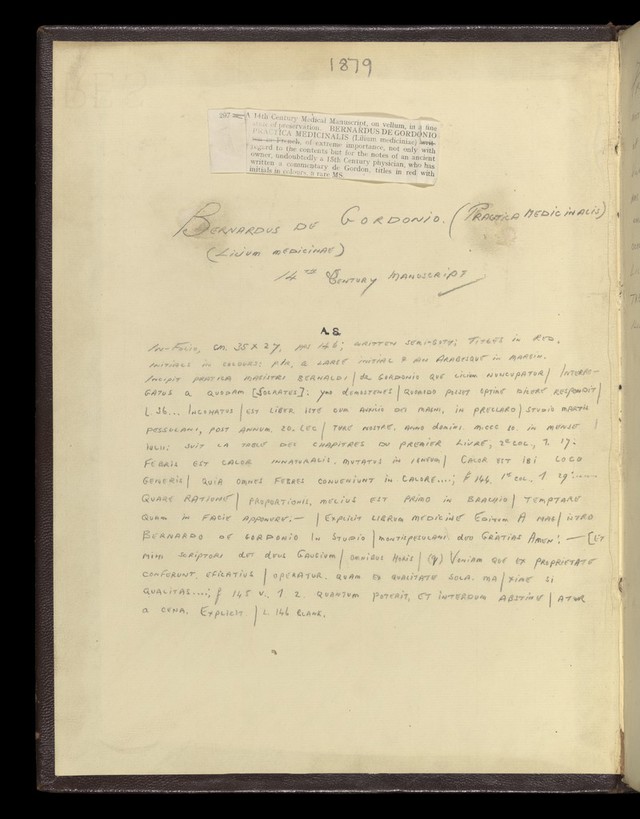 1879
267 A 14th Century Medical Manuscript, on vellum, in a fine
state of preservation. BERNARDUS DE GORDONIO
PRACTICA MEDICINALIS (Lilium mediciniae)
of extreme importance, not only with
regard to the contents but for the notes of an ancient
owner, undoubtedly a 15th Century physician, who has
written a commentary de Gordon, titles in red with
initials in colours, a rare MS.
BERNARDUS DE GORDONIO. (PRACTICA MEDICINALIS)
(LILIUM MEDICINAE)
14 CENTURY MANUSCRIPT
A. S.
IN-FOLIO, CM. 35 X 27, 146; WRITTEN TITLES IN RED,
INITIALS IN COLOURS; A LARGE INITIAL & AN ARABESQUE IN MARGIN.
INCIPIT PRATICA MAGISTRI BERNALDI / DE GORDONIO QUE LILIUM NUNCUPATUR / INTERRO-
GATUS A QUODAM [SOCRATES]: YMO DEMOSTENES / QUOMODO POSSET OPTIME DICERE RESPONDIT /
INCONATUS / EST LIBER ISTE CUM DEI MAGNI, IN PRECLARO / STUDIO MONTIS
PESSOLANI, POST ANNUM. 20. / NOSTRE. ANNO DOMINI. M.CCC IN MENSE /
IULII: SUIT LA TABLE DES CHAPITRES DU PREMIER LIVRE, 2E COL., 1. 17:
FEBRIS EST CALOR INNATURALIS. MUTATUS IN IGNEUM / CALOR EST IBI LOCO
GENERIS / QUIA OMNES FEBRES CONVENIUNT IN CALORE....; F 144. 1E COL. 1 29:......
QUARE RATIONE / PROPORTIONIS, MELIUS EST PRIMO IN BRACHIO / TEMPTARE
QUAM IN FACIE APPONERE: — / EXPLICIT LIBRUM MEDICINE EDITUM A MAG / ISTRO
BERNARDO DE GORDONIO IN STUDIO / MONTISPESULANI. DEO GRATIAS AMEN: — [ET
MIHI SCRIPTORI DET DEUS GAUDIUM / OMNIBUS HORIS / VENIAM QUE EX PROPRIETATE
CONFERUNT. EFICATIUS / OPERATUR. QUAM EX QUALITATE SOLA. MA / XIME SI
QUALITAS....; F 145 V. 1 2. QUANTUM POTERIT, ET INTERDUM ABSTINE / ATUR
A CENA. EXPLICIT. / L 146 BLANK.